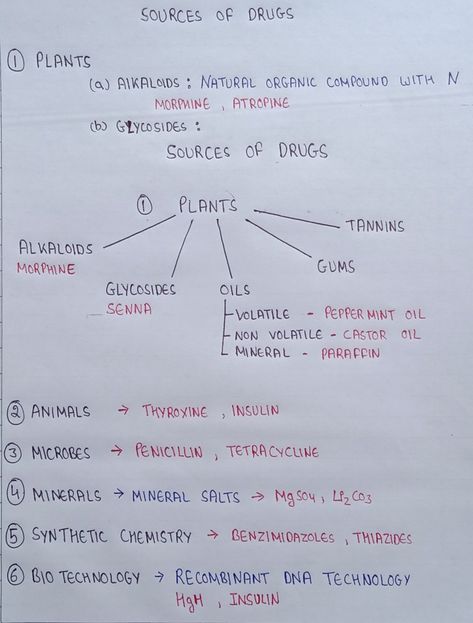 SOURCES OF DRUGS
① PLANTS
(a) AlKALOIDS : NATURAL ORGANIC COMPOUND WITH N
MORPHINE , ATROPINE
(b) GLYCOSIDES :
SOURCES OF DRUGS
① PLANTS
TANNINS
ALKALOIDS
MORPHINE
GUMS
GLYCOSIDES OILS
SENNA
VOLATILE - PEPPERMINT OIL
NON VOLATILE - CASTOR OIL
MINERAL - PARAFFIN
② ANIMALS → THYROXINE , INSULIN
③ MICROBES → PENICILLIN , TETRACYCLINE
④ MINERALS → MINERAL SALTS → MgSO4 , Li2CO3
⑤ SYNTHETIC CHEMISTRY → BENZIMIDAZOLES , THIAZIDES
⑥ BIO TECHNOLOGY → RECOMBINANT DNA TECHNOLOGY
HgH , INSULIN